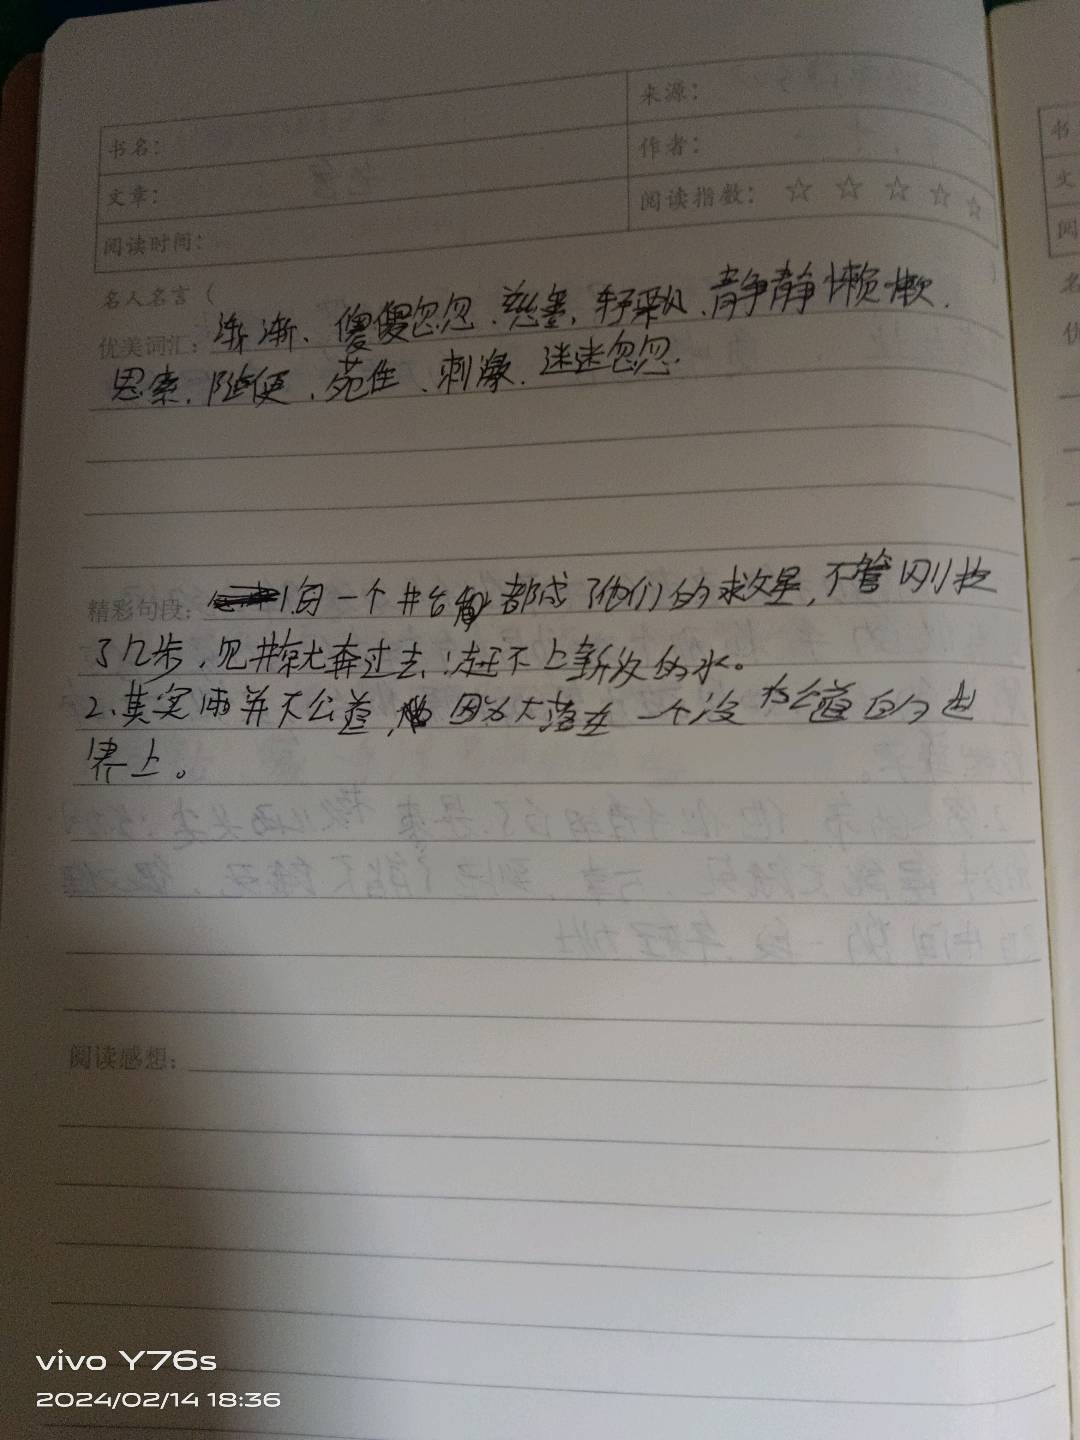 书名：
来源：
文章：
作者：
阅读时间：
阅读指数：☆ ☆ ☆ ☆ ☆
名人名言（
优美词汇：渐渐、傻傻忽忽、慈墨、轻飘、静静懒懒、
思索、随便、苑住、刺激、迷迷忽忽.
精彩句段：1每一个井台都成了他们的救星，不管刚拉
了几步，见井就奔过去，赶不上新汲的水。
2、其实雨并不公道，因为落在一个没有公道的世
界上。
阅读感想：
书
文
阅
名
优
vivo Y76s
2024/02/14 18:36